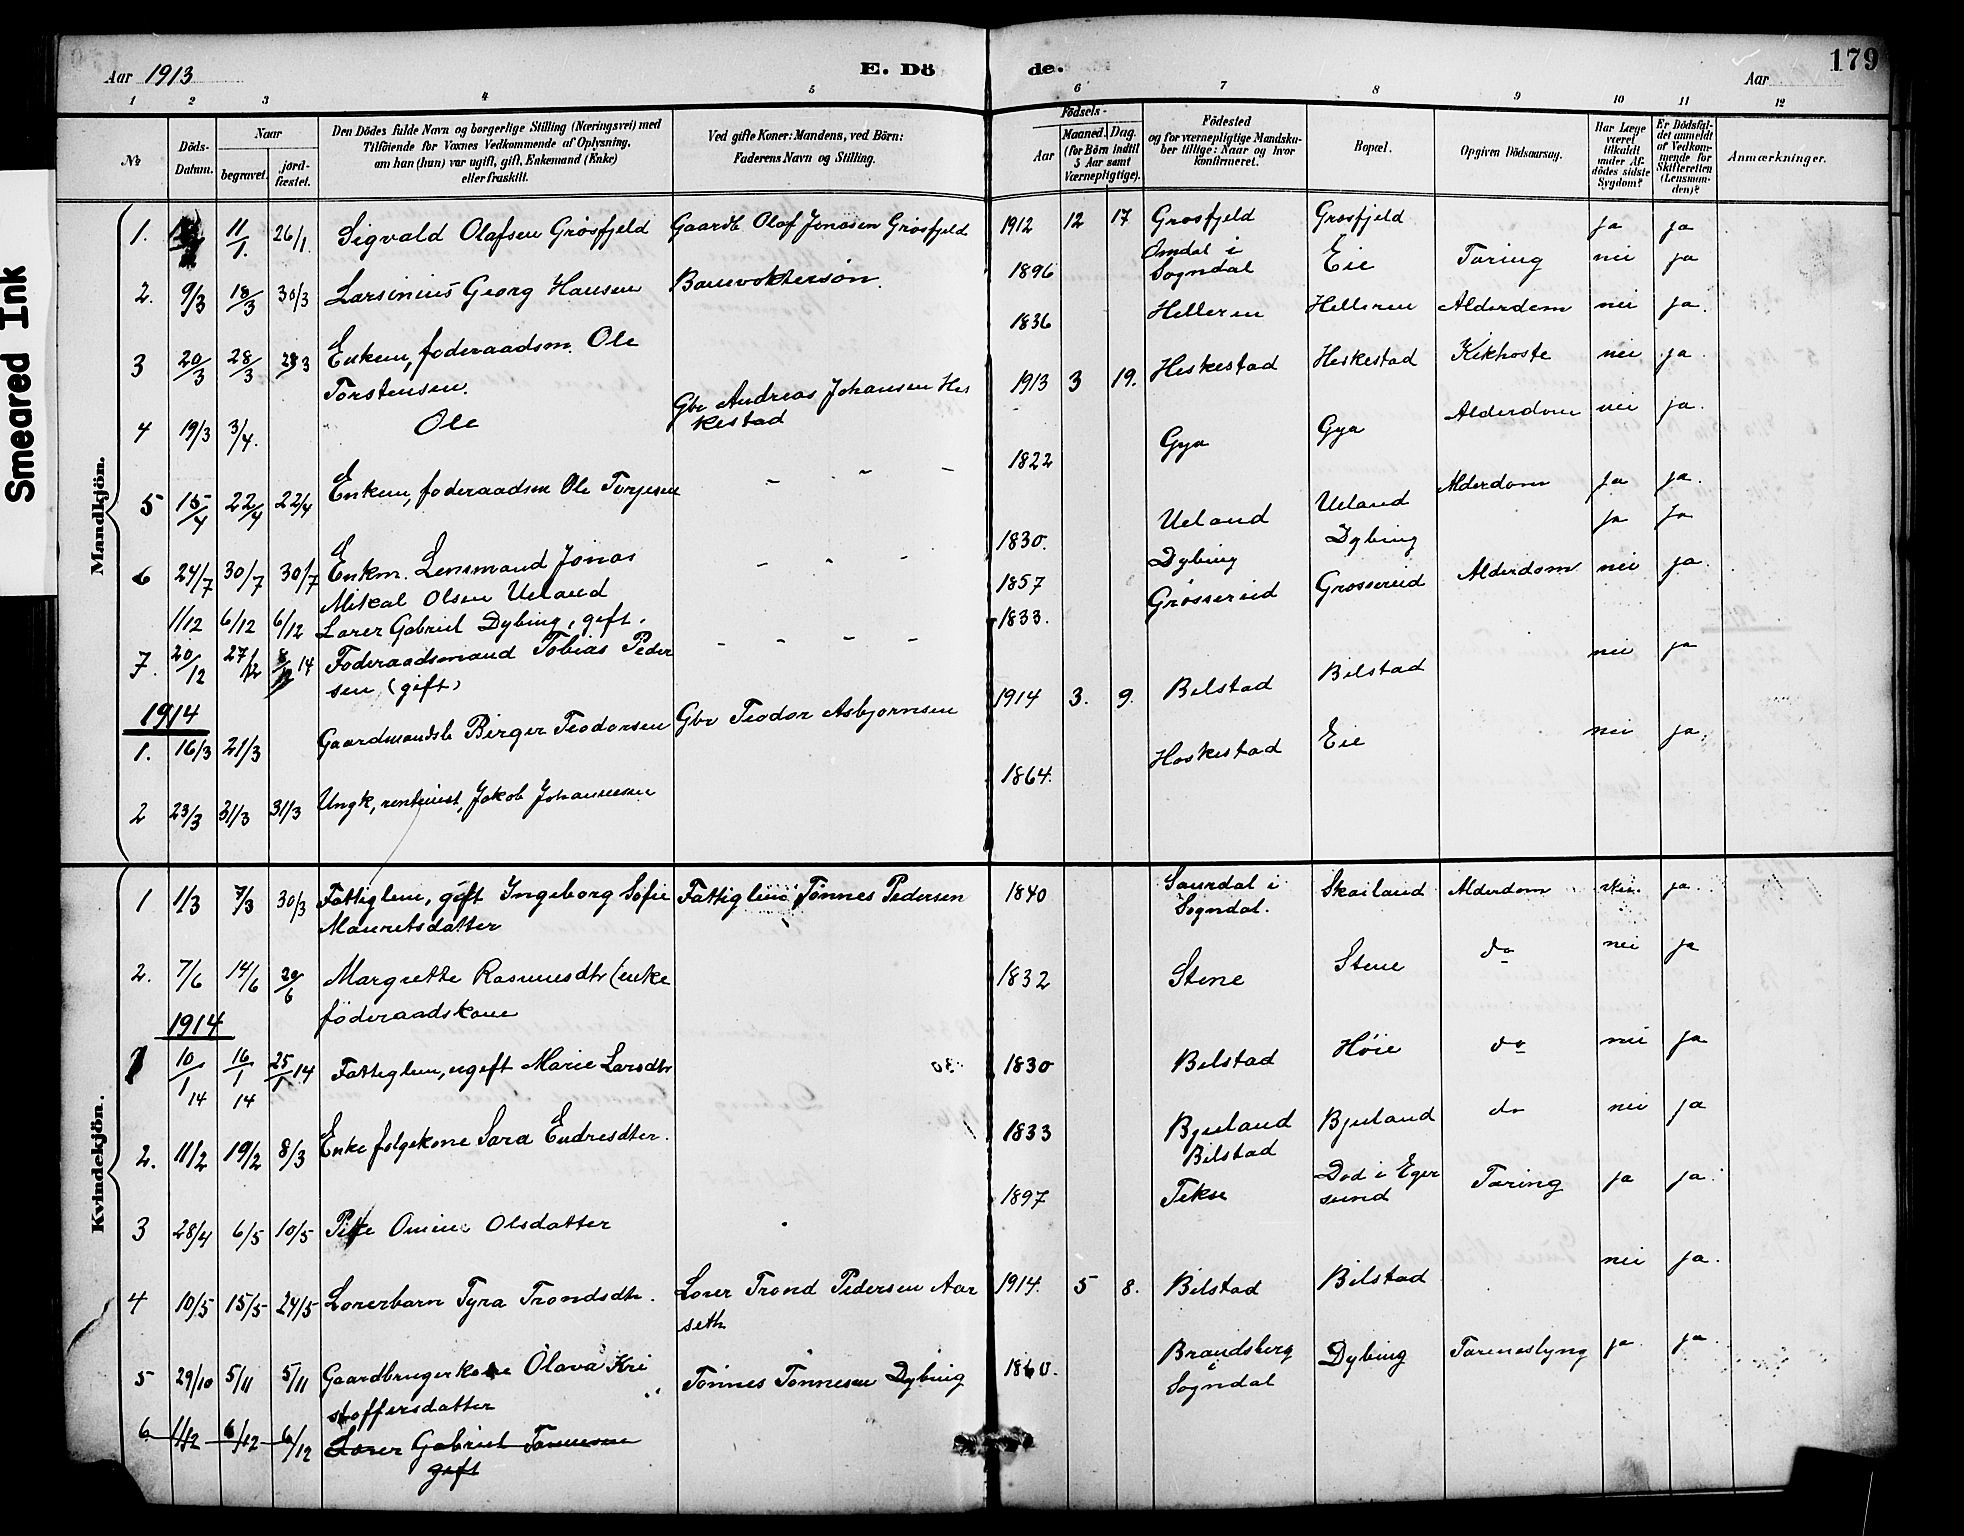 Smeared Ink
Aar 1913
E. Dö de.
Aar
179
1 2 3 4 5 6 7 8 9 10 11 12
№
Döds-
Datum.
Naar
begravet.
jord-
fæstet.
Den Dödes fulde Navn og borgerlige Stilling (Næringsvei) med
Tilföiende for Voxnes Vedkommende af Oplysning,
om han (hun) var ugift, gift, Enkemand (Enke)
eller fraskilt.
Ved gifte Koner: Mandens, ved Börn:
Faderens Navn og Stilling.
Födsels-
Aar
Maaned. Dag.
(for Börn indtil
5 Aar samt
Værnepligtige).
Födested
og for værnepligtige Mandsku-
ber tillige: Naar og hvor
konfirmeret.
Bopæl.
Opgiven Dödsaarsag.
Har Læge
været
tilkaldt
under Af-
dödes sidste
Sygdom?
Er Dödsfal-
det anmeldt
af Vedkom-
mende for
Skifteretten
(Lensman-
den)?
Anmærkninger.
Mandkjön.
1. 11/1. 26/1. Sigvald Olafsen Grøsfjeld Gaardb Olaf Jonasen Grøsfjeld 1912 12 17 Grøsfjeld Grøsfjeld ja ja
2. 9/3 18/3 30/3 Larsinius Georg Hansen Banevoktersøn. 1896 Omdal i
Sogndal Eie Tæring nei ja
3 20/3 28/3 Enkem, føderaadsm. Ole
Torstensen. 1836 Helleren Helleren Alderdom nei ja.
4 19/3 3/4. Ole Gbr Andreas Johansen Hes
kestad 1913 3 19. Heskestad Heskestad Kikhoste nei ja.
5 15/4 22/4 22/4 Enkem, føderaadsm Ole Torjesen - - - 1822 Gya Gya Alderdom nei ja.
6 24/7 30/7 30/7 Enkm. Lensmand Jonas
Mikal Olsen Ueland - - - 1830. Ueland Ueland Alderdom ja ja.
1/12 6/12 6/12 Lærer Gabriel Dybing, gift. 1857 Dybing Dybing ja ja
7. 20/12 27/12 14 Føderaadsmand Tobias Peder
sen (gift) - - - - 1833. Grøssereid Grøssereid Alderdom nei ja.
1914
1. 16/3 21/3 Gaardmandsb Birger Teodorsen Gbr Teodor Asbjørnsen 1914 3. 9. Bilstad Bilstad nei ja
2 23/3 31/3 31/3 Ungk, rentenist, Jakob Johannesen 1864. Heskestad Eie nei ja.
Kvindekjön.
1 1/3 7/3 30/3 Fattiglem, gift Ingeborg Sofie
Mauritsdatter Fattiglem Tønnes Pedersen 1840 Saurdal i
Sogndal. Skailand Alderdom nei. ja.
2. 7/6 14/6 29/6 Margrethe Rasmusdtr (enke
føderaadskone 1832 Stene Stene do nei ja
1914
1 10/1 14 16/1 14 25/1 14 Fattiglem, ugift Marie Larsdtr 1830 Bilstad Høie do nei ja
2. 11/2 19/2 8/3 Enke følgekone Sara Endresdter. 1833 Bjuland Bjuland do nei ja
3 28/4 6/5 10/5 Pike Omine Olsdatter 1897 Bilstad
Tekse Død i Eger
sund Tæring ja ja.
4 10/5 15/5 24/5 Lærerbarn Tyra Trondsdtr. Lærer Trond Pedersen Aar
seth 1914. 5 8. Bilstad Bilstad nei ja.
5 29/10 5/11 5/11 Gaardbrugerkone Olava Kri
stoffersdatter Tønnes Tønnesen Dybing 1860. Brandsberg
i
Sogndal Dybing Tarmeslyng ja. ja.
6. 1/12 6/12 6/12 Lærer Gabriel Tønnesen
gift